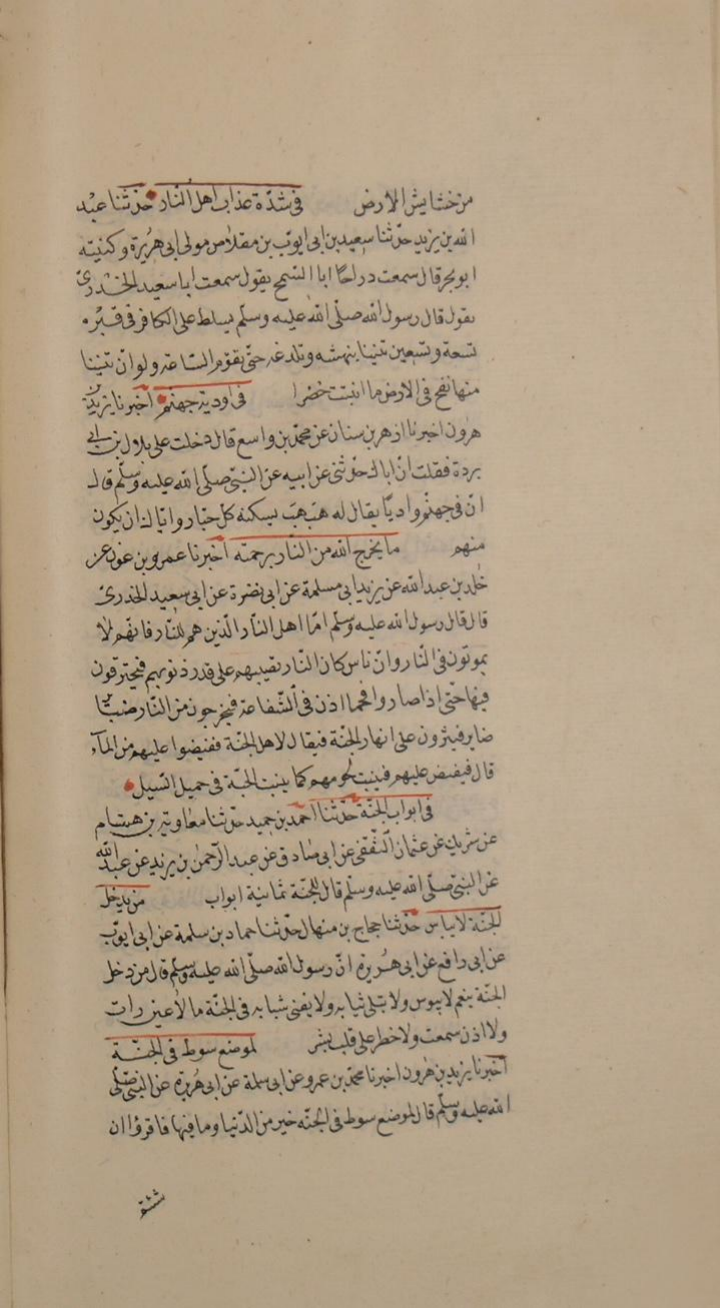 من خشايش الارض في شدة عذاب اهل النار حدثنا عبد
الله بن يزيد حدثنا سعيد بن ابى ايوب بن مقلاص مولى ابى هريرة وكنيته
ابو بحر قال سمعت دراجا ابا السمح يقول سمعت ابا سعيد الخدرى
يقول قال رسول الله صلى الله عليه وسلم يسلط على الكافر فى قبره
تسعة وتسعين تنينا ينهشه وتلدغه حتى يقوم الساعة ولو ان تنينا
منها نفخ فى الارض ما انبتت خضرا فى اودية جهنم اخبرنا يزيد بن
هرون اخبرنا ازهر بن سنان عن محمد بن واسع قال دخلت على بلال بن ابى
بردة فقلت ان اباك حدثنى عن ابيه عن النبى صلى الله عليه وسلم قال
ان فى جهنم واديا يقال له هبهب يسكنه كل جبار واياك ان يكون
منهم ما يخرج الله من النار برحمته اخبرنا عمرو بن عون عن
خلد بن عبد الله عن يزيد ابى مسلمة عن ابى نضرة عن ابى سعيد الخدرى
قال قال رسول الله عليه وسلم اما اهل النار الذين هم للنار فانهم لا
يموتون فى النار وان ناس كان النار تصيبهم على قدر ذنوبهم فيحترقون
فيها حتى اذا صاروا فحما اذن فى الشفاعة فيخرجون من النار ضبائر
ضاير فينثرون على انهار الجنة فيقال لاهل الجنة ففيضوا عليهم من الماء
قال فيفيض عليهم فينبت لحومهم كما ينبت الحبة فى حميل السيل
فى ابواب الجنة حدثنا احمد بن حميد حدثنا معاوية بن هشام
عن شريك عن عثمان الثقفى عن ابى صادق عن عبد الرحمن بن يزيد عن عبد الله
عن النبى صلى الله عليه وسلم قال للجنة ثمانية ابواب من يدخل
الجنة لا يباس حدثنا حجاج بن منهال حدثنا حماد بن سلمة عن ابى ايوب
عن ابى رافع عن ابى هريرة ان رسول الله صلى الله عليه وسلم قال من دخل
الجنة ينعم لا يبوس ولا تبلى ثيابه ولا يفنى شبابه فى الجنة ما لا عين رات
ولا اذن سمعت ولا خطر على قلب بشر لموضع سوط فى الجنة
اخبرنا يزيد بن هرون اخبرنا محمد بن عمرو عن ابى سلمة عن ابى هريرة عن النبى صلى
الله عليه وسلم قال لموضع سوط فى الجنه خير من الدنيا وما فيها فاقرؤا ان
شئتم